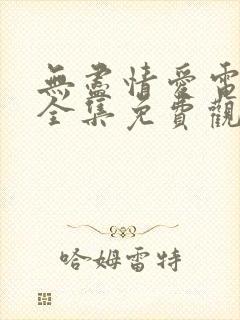 無盡情愛電
全集免費觀
哈姆雷特